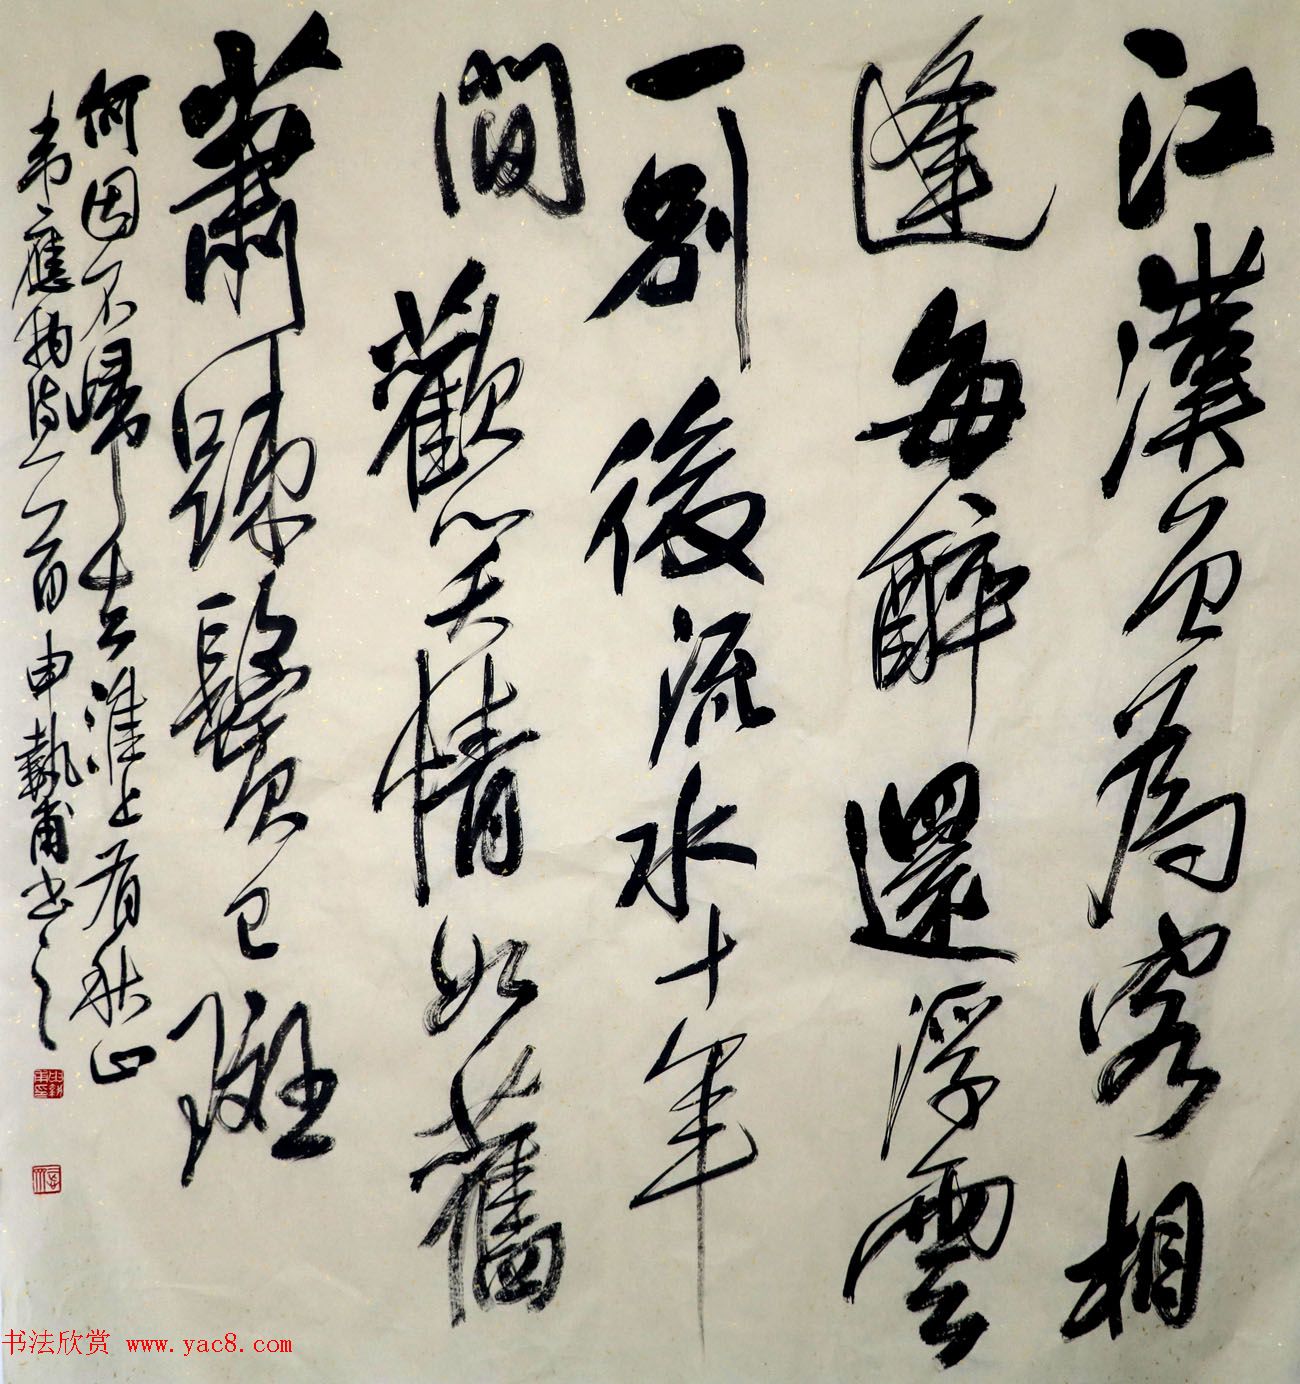 江漢曾為客相
逢每醉還浮雲
一別後流水十年
間歡笑情如舊
蕭踈鬢已斑
何因不歸去淮上有秋山
韋應物詩一首申執甫書之
书法欣赏 www.yac8.com